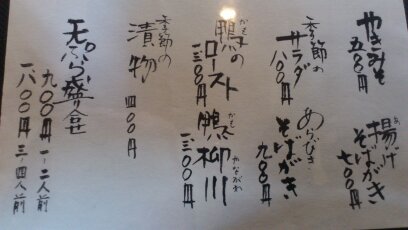 やきみそ 五〇〇円
揚げそばがき 七〇〇円
季節のサラダ 八〇〇円
あらびきそばがき 九〇〇円
鴨のロースト 一三〇〇円
鴨柳川 一三〇〇円
季節の漬物 四〇〇円
天ぷら盛合せ
九〇〇円 一・二人前
一八〇〇円 三・四人前